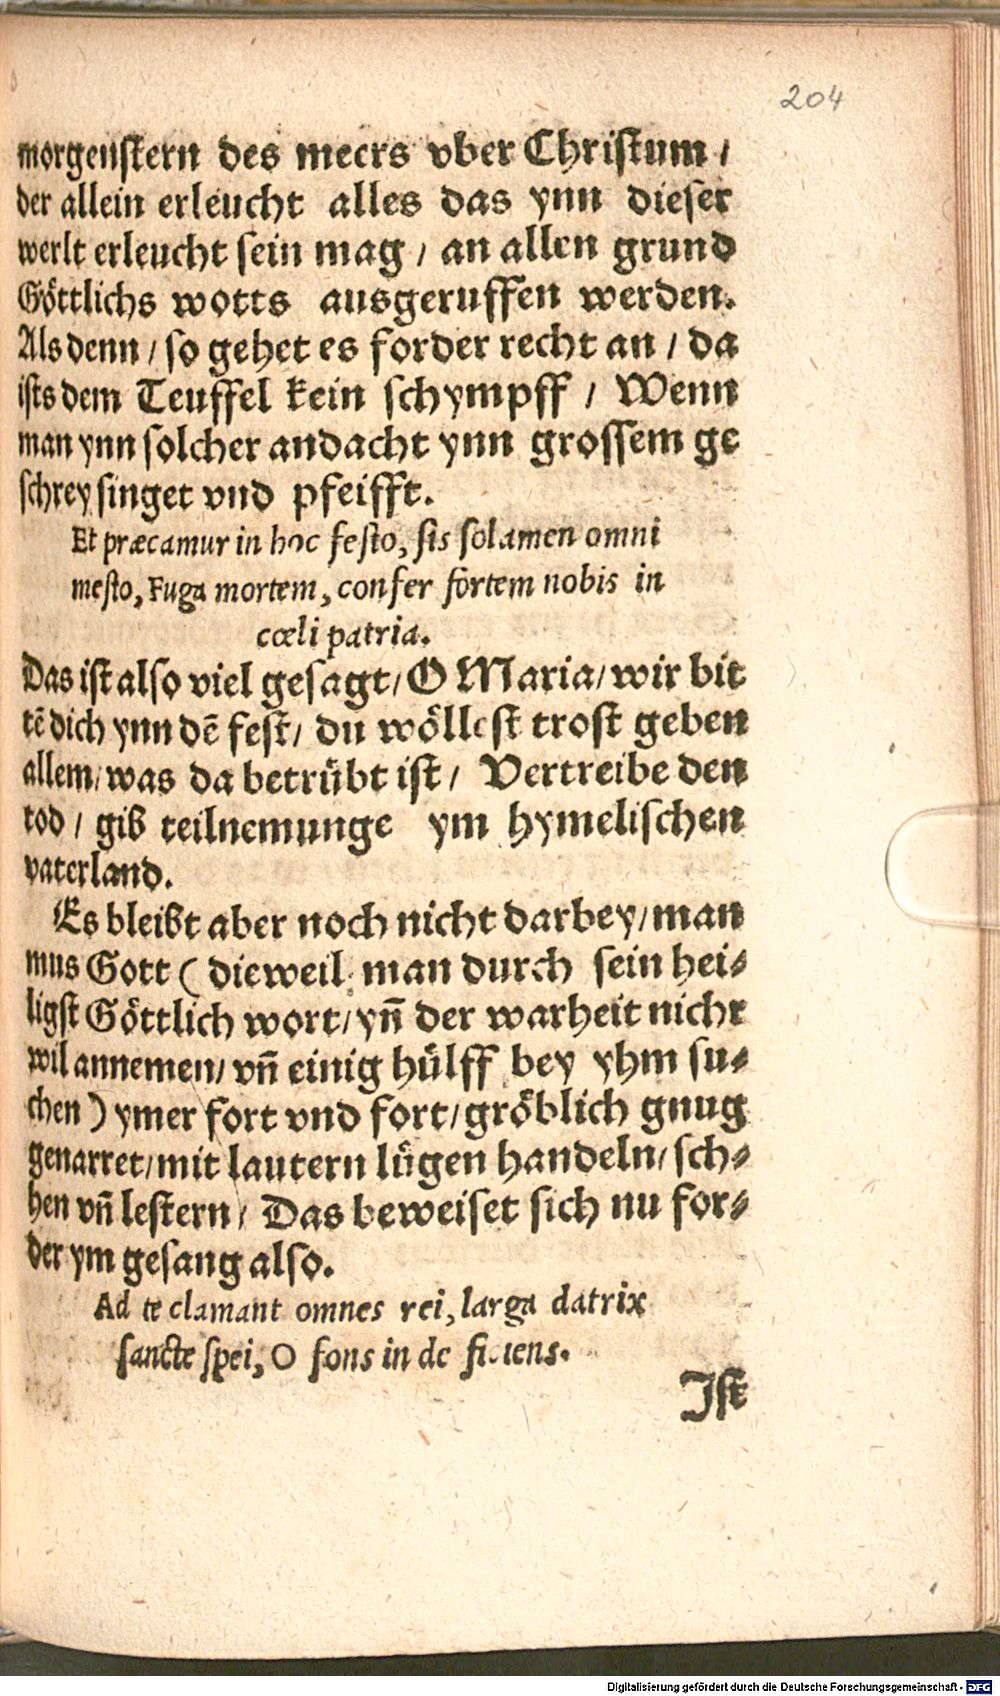 204
morgenstern des meers vber Christum /
der allein erleucht alles das ynn dieser
werlt erleucht sein mag / an allen grund
Göttlichs wotts ausgeruffen werden.
Als denn / so gehet es forder recht an / da
ists dem Teuffel kein schympff / Wenn
man ynn solcher andacht ynn grossem ge
schrey singet vnd pfeifft.
Et præcamur in hoc festo, sis solamen omni
mesto, Fuga mortem, confer sortem nobis in
cœli patria.
Das ist also viel gesagt / O Maria / wir bit
tē dich ynn dē fest / du wöllest trost geben
allem / was da betrübt ist / Vertreibe den
tod / gib teilnemunge ym hymelischen
vaterland.
Es bleibt aber noch nicht darbey / man
mus Gott ( dieweil man durch sein hei⸗
ligst Göttlich wort / yñ der warheit nicht
wil annemen / vñ einig hülff bey yhm su⸗
chen ) ymer fort vnd fort / gröblich gnug
genarret / mit lautern lügen handeln / sch⸗
hen vñ lestern / Das beweiset sich nu for⸗
der ym gesang also.
Ad te clamant omnes rei, larga datrix
sancte spei, O fons in de
Ist
Digitalisierung gefördert durch die Deutsche Forschungsgemeinschaft - DFG